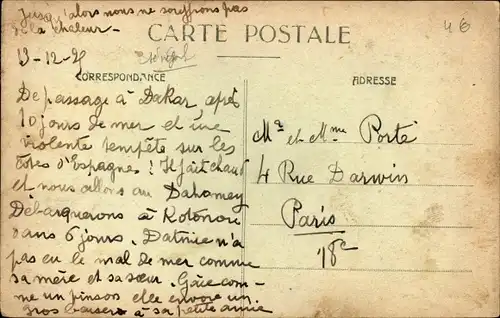 Jusqu'alors nous ne souffrons pas
de la chaleur -
CARTE POSTALE
46
13-12-25
Sénégal
CORRESPONDANCE
ADRESSE
De passage à Dakar, après
10 jours de mer et une
violente tempête sur les
côtes d'Espagnes ! Il fait chaud
et nous allons au Dahomey
Débarquerons à Kotonou
dans 6 jours. n'a
pas eu le mal de mer comme
sa mère et sa sœur. Gaie com-
me un pinson elle envoie un
gros baiser à sa petite amie
Mr et Mme Porte
4 Rue Darwin
Paris
18e